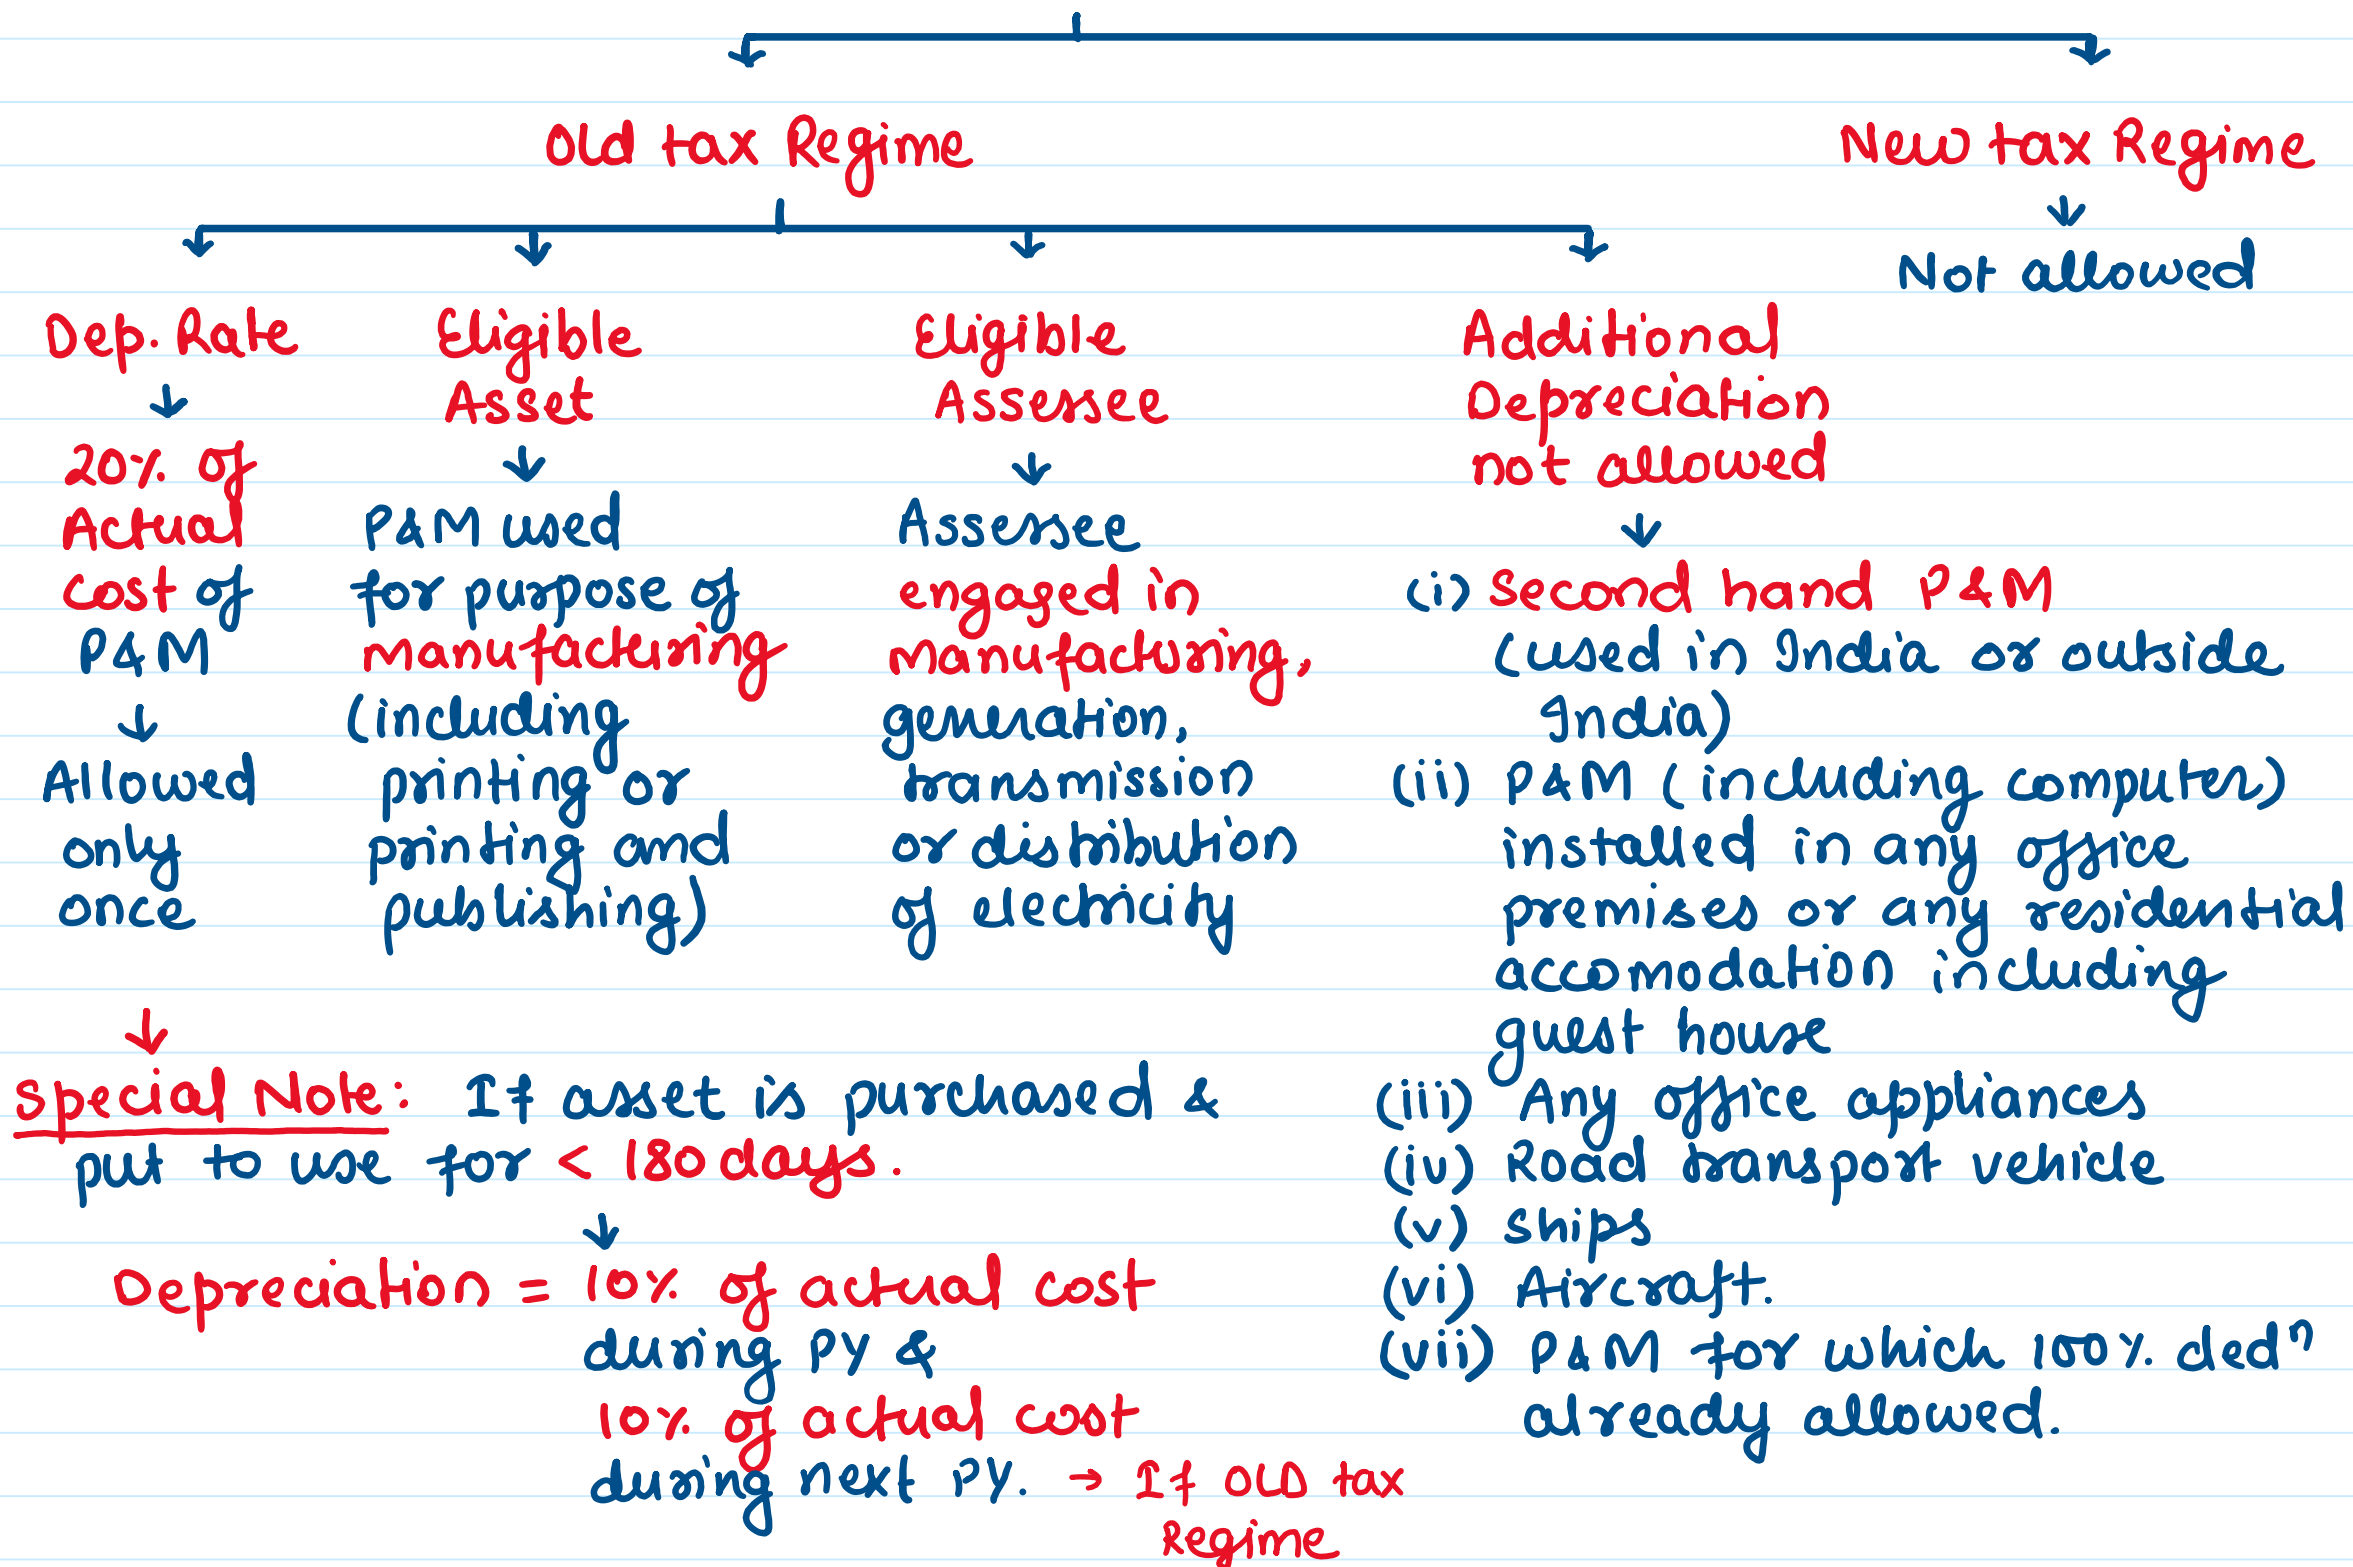 Old tax Regime
New tax Regime
Not allowed
Dep. Rate
20% of
Actual
cost of
P&M
Allowed
only
once
Eligible
Asset
P&M used
for purpose of
manufacturing
(including
printing or
printing and
publishing)
Eligible
Assersee
Assersee
engaged in
manufacturing,
generation,
transmission
or distribution
of electricity
Additional
Depreciation
not allowed
(i) Second hand P&M
(used in India or outside
India)
(ii) P&M (including computer)
installed in any office
premises or any residential
accomodation including
guest house
(iii) Any office appliances
(iv) Road transport vehicle
(v) Ships
(vi) Aircraft.
(vii) P&M for which 100% dedⁿ
already allowed.
Special Note: If asset is purchased &
put to use for < 180 days.
Depreciation = 10% of actual cost
during PY &
10% of actual cost
during next PY. → If OLD tax
Regime